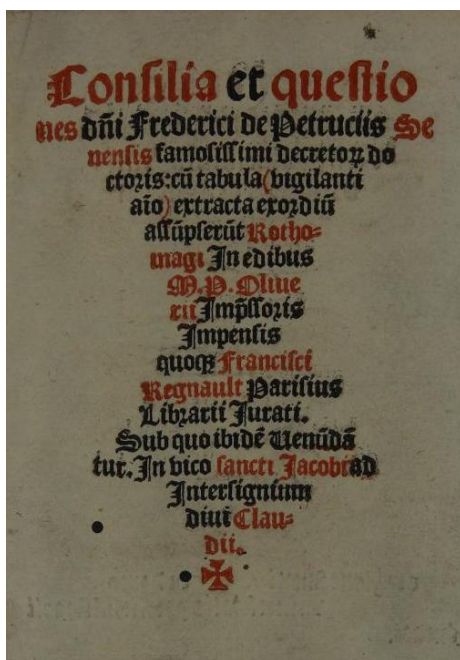 Consilia et questio
nes dñi Frederici de Petruciis Se
nensis famosissimi decretoꝝ do
ctoris: cũ tabula (vigilanti
aĩo) extracta exordiũ
assũpserũt Rotho-
magi In edibus
M. P. Oliue
rii Imp̃ssoris
Impensis
quoqꝫ Francisci
Regnault Parisius
Librarii Jurati.
Sub quo ibidẽ Uenũdã
tur. In vico sancti Jacobi ad
Intersignium
diui Clau-
dii.